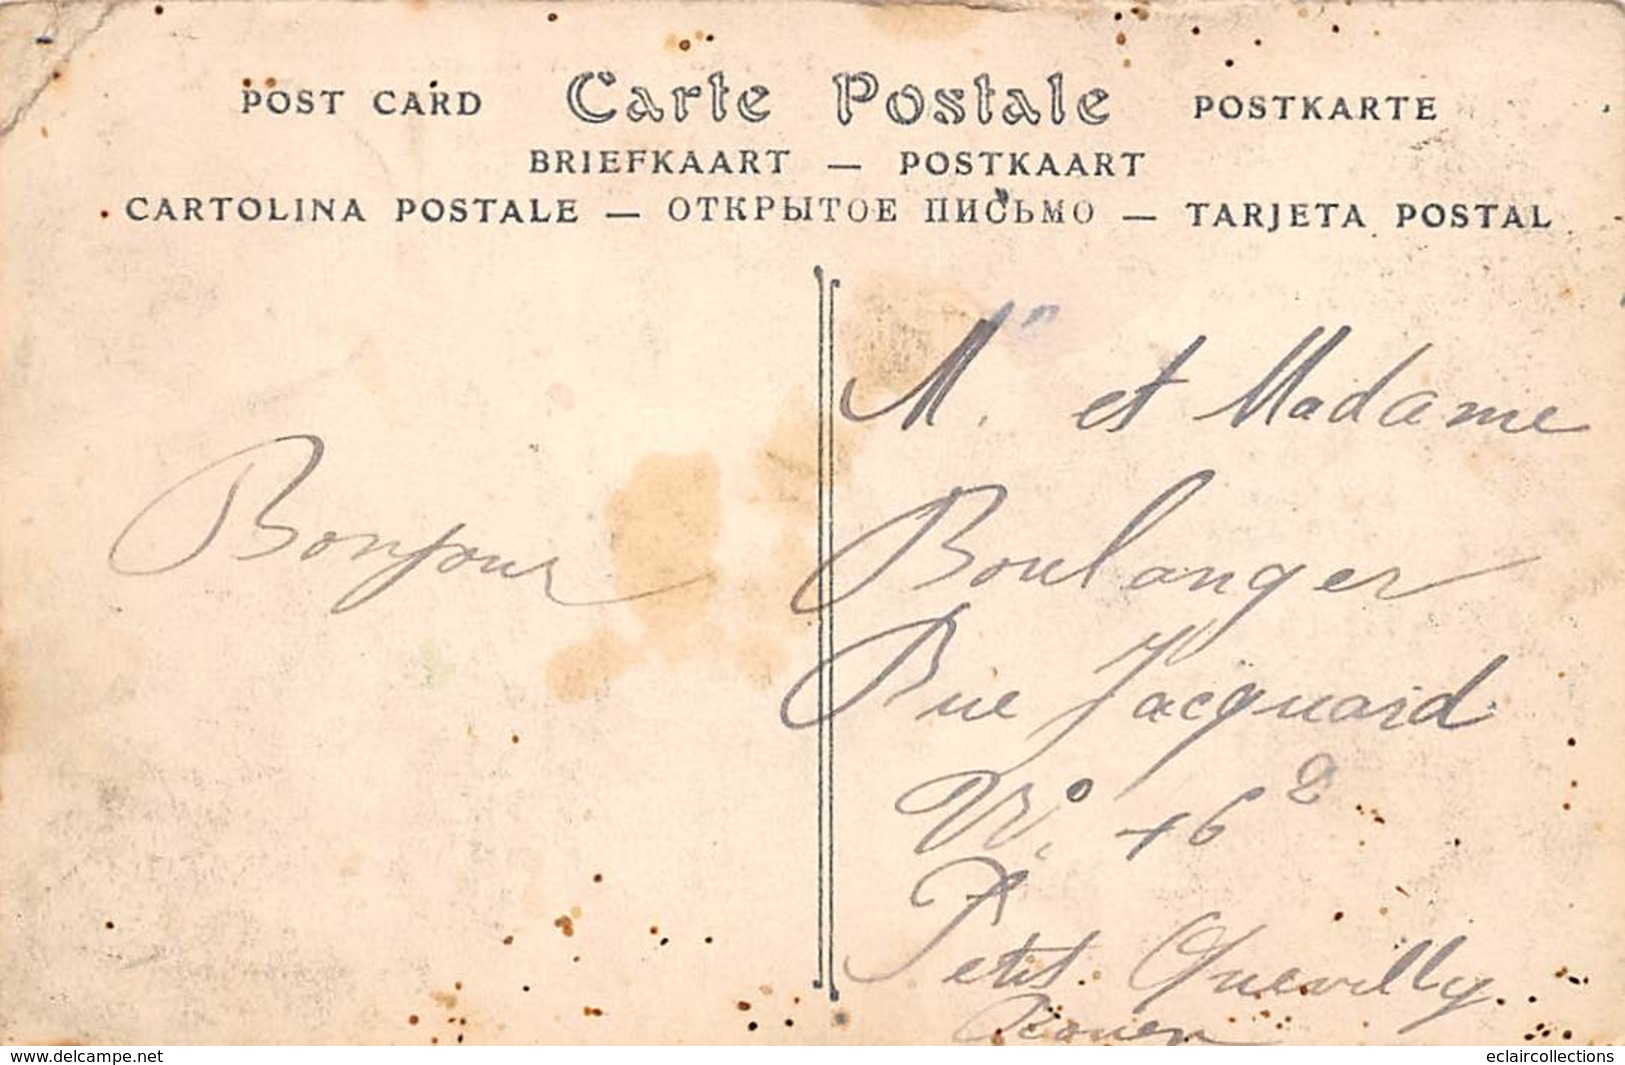 POST CARD Carte Postale POSTKARTE
BRIEFKAART — POSTKAART
CARTOLINA POSTALE — ОТКРЫТОЕ ПИСЬМО — TARJETA POSTAL
Bonjour
M. et Madame
Boulanger
Rue Jacquard
N° 16
Petit Quevilly
Rouen
www.delcampe.net
eclaircollections